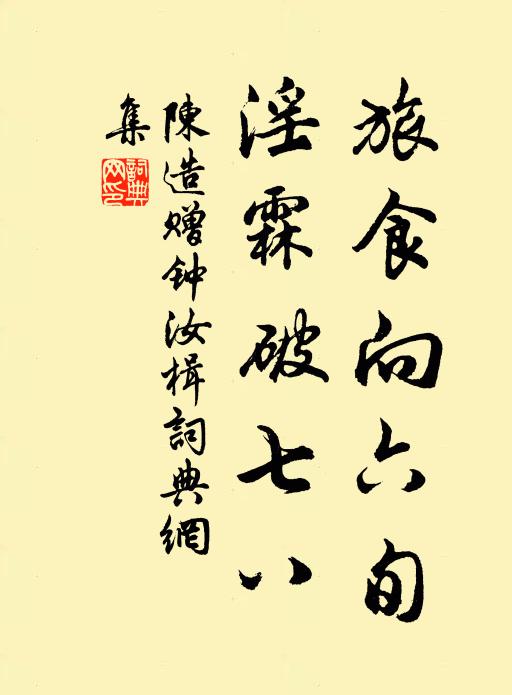 旅食向六旬
淫霖破七八
陳造赠钟汝楫詞典網
集
詞典網印